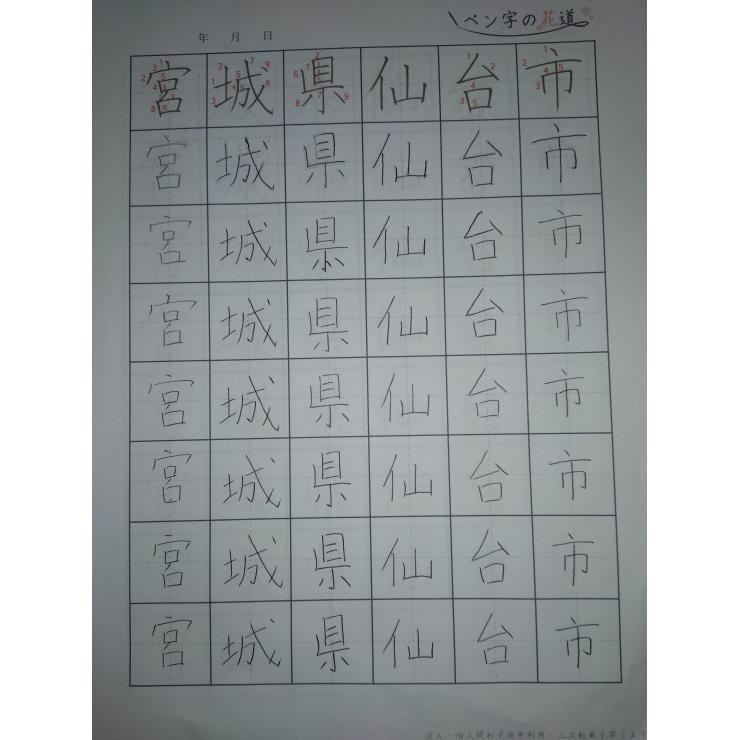 ペン字の花道
年 月 日
宮城県仙台市
宮城県仙台市
宮城県仙台市
宮城県仙台市
宮城県仙台市
宮城県仙台市
宮城県仙台市
宮城県仙台市
法人・個人問わず商用利用・二次転載を禁じます